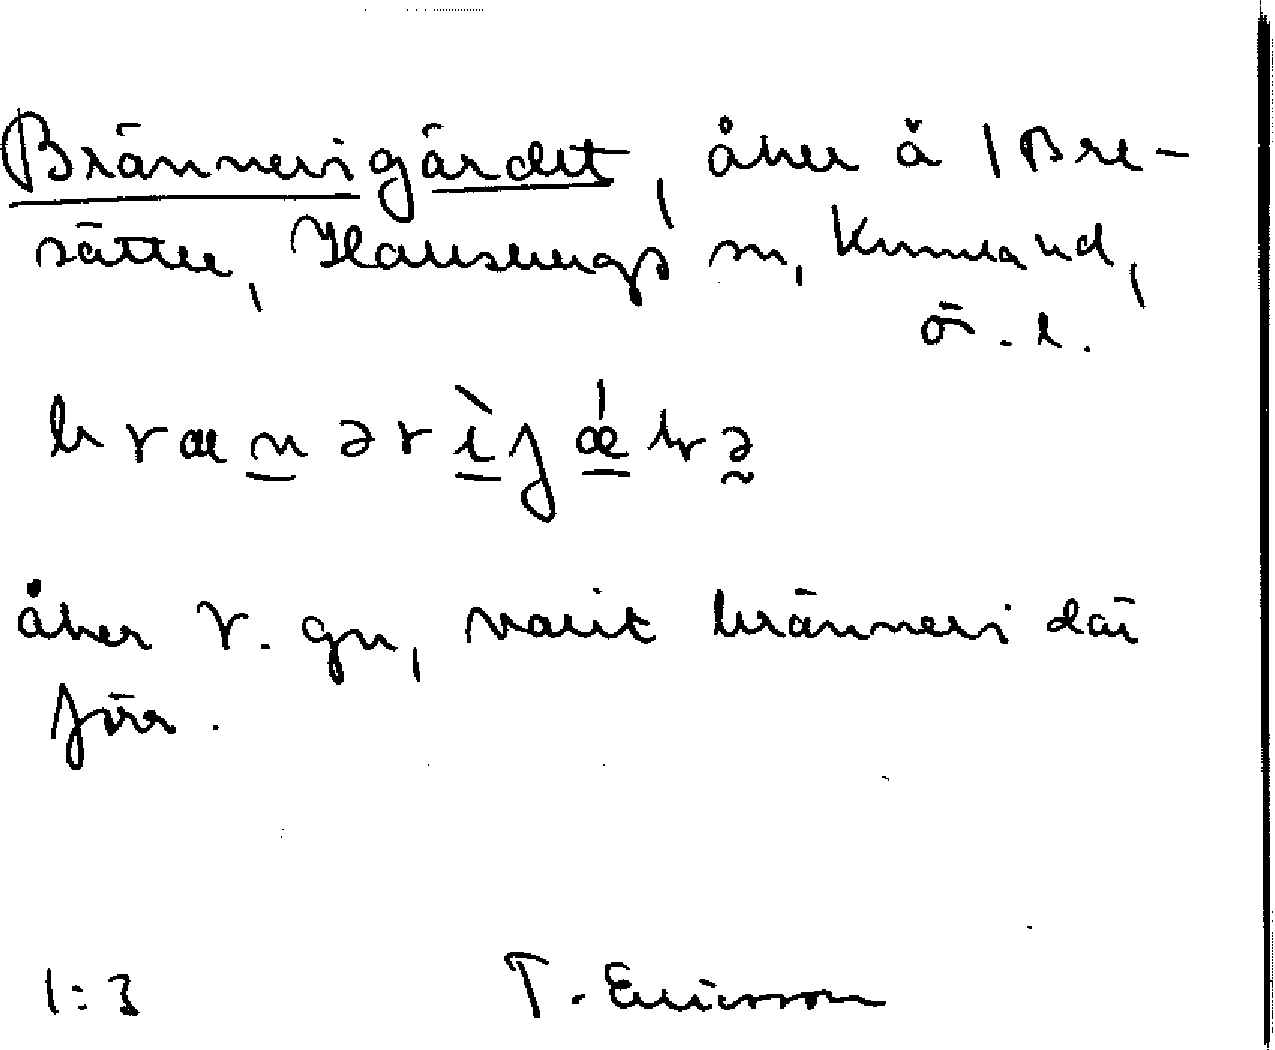 Brännerigärdet, åker å 1 Bre-
sätter, Hallsbergs sn, Kumla hd,
ör. l.
brænərìgǽḷṛə
åker V. gn, varit bränneri där
förr.
1:3 T. Ericsson